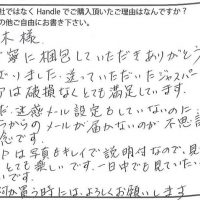 社ではなく Handle でご購入頂いたご理由はなんですか？
の他ご自由にお書き下さい。
木様、
寧に梱包していただきありがとう
いました。送っていただいたジャスパー
アは破損なくとても満足しています。
だ、迷惑メール設定をしていないのに、
らからのメールが届かないのが不思議
念です。
Pは写真もキレイで説明付なので、見
とても楽しいです。一日中でも見ていたい
いです。
何か買う時には、よろしくお願いします